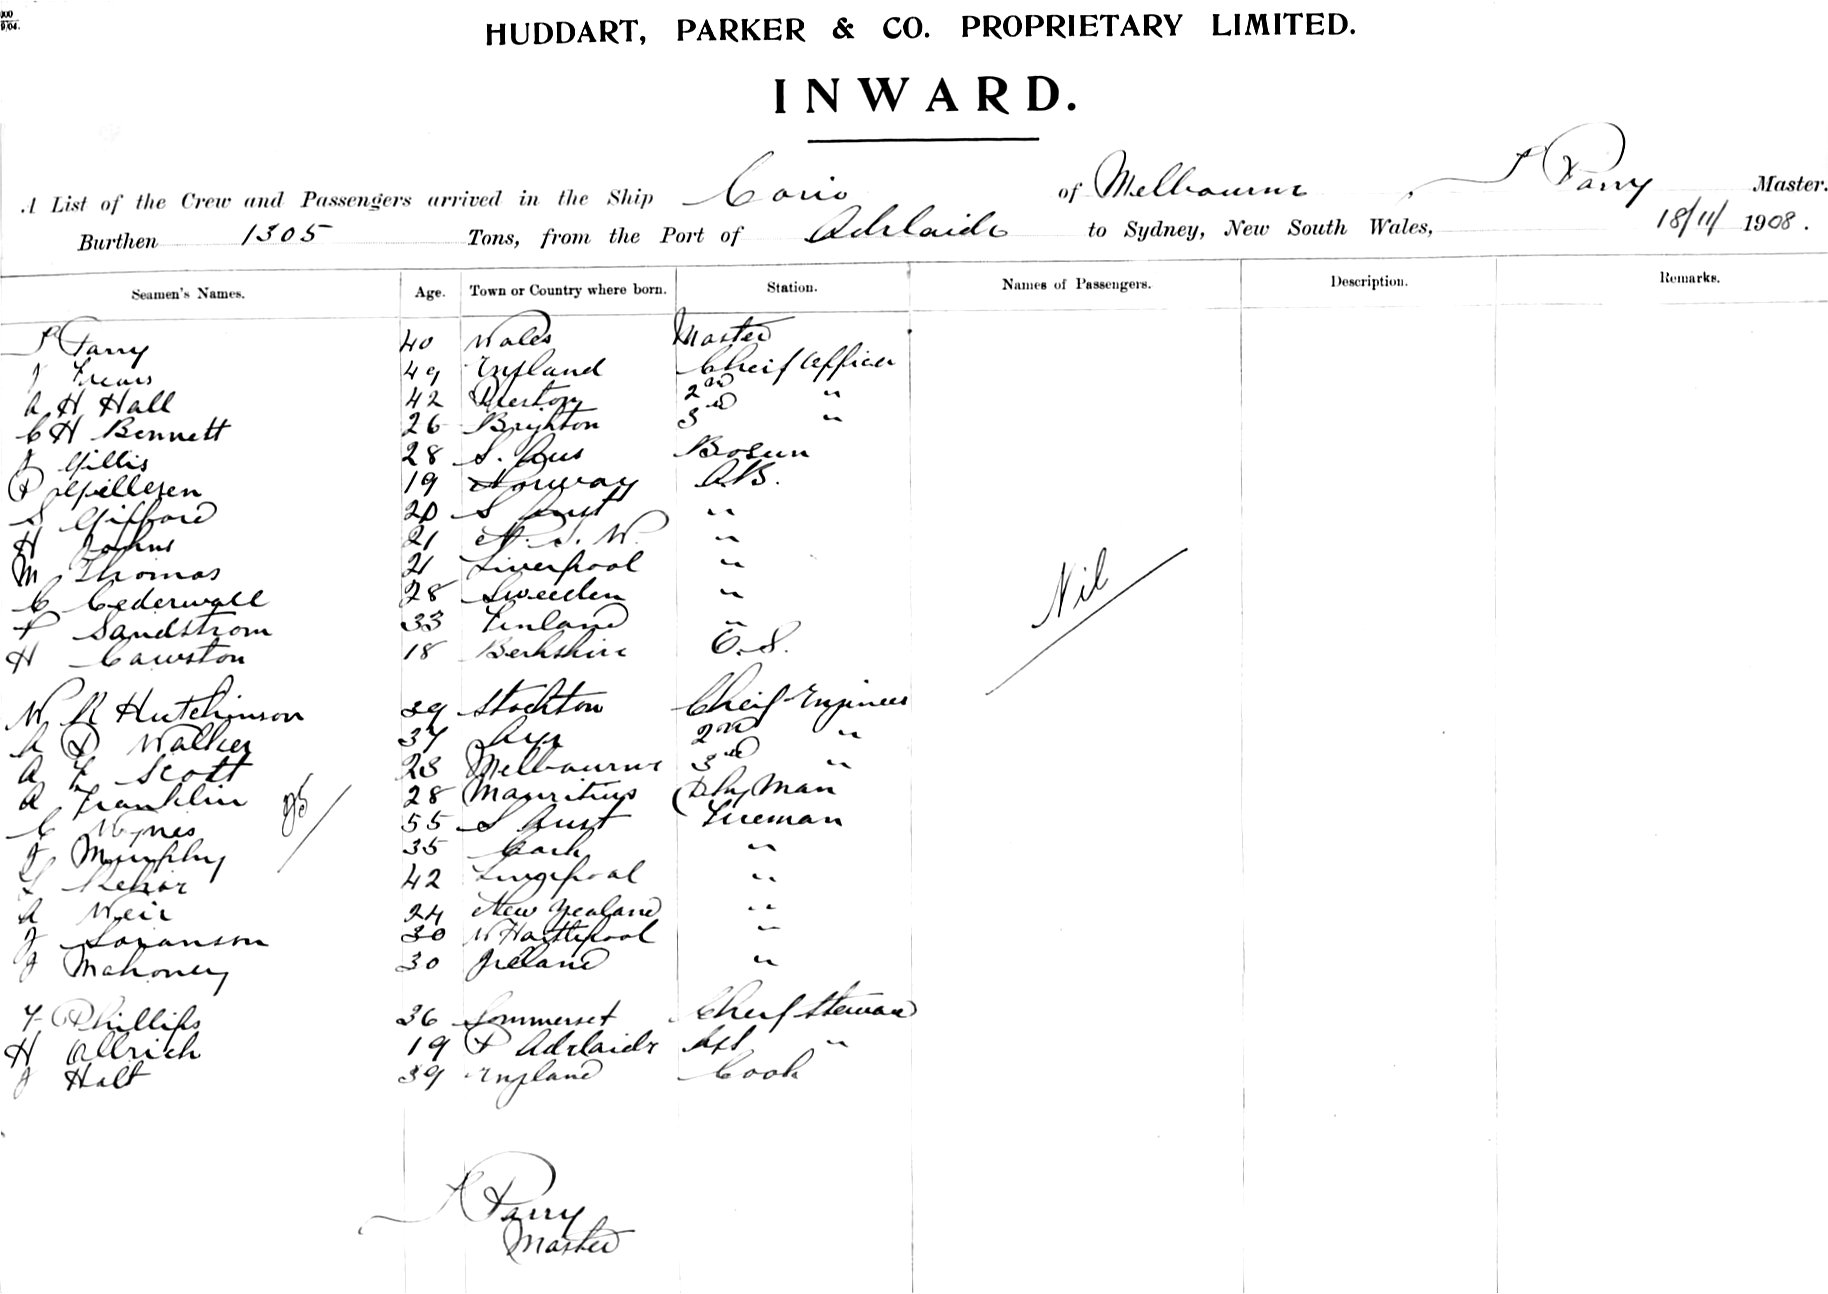 HUDDART, PARKER & CO. PROPRIETARY LIMITED.
INWARD.
A List of the Crew and Passengers arrived in the Ship Corio of Melbourne, Parry Master.
Burthen 1305 Tons, from the Port of Adelaide to Sydney, New South Wales, 18/11/1908.
Seamen's Names. Age. Town or Country where born. Station. Names of Passengers. Description. Remarks.
Parry 40 Wales Master
J 49 England Cheif Officer
A H Hall 42 Preston 2nd "
C H Bennett 26 Brighton 3rd "
J Gillis 28 S. Aus Bosun
19 Norway A.B.
S Gifford 20 S Aust "
H Johns 21 N. S. W. "
M Thomas 21 Liverpool "
C Cederwall 28 Sweeden "
Sandstrom 33 Finland "
H Cawston 18 Berkshire O.S.
Nil
W R Hutchinson 39 Stockton Cheif Engineer
A D Walker 37 Ayr 2nd "
A F Scott 23 Melbourne 3rd "
A Franklin 28 Mauritius Dky Man
C 55 S Aust Fireman
25
J Murphy 35 Cork "
42 Liverpool "
A Weir 24 New Zealand "
J Soranson 30 W Hartlepool "
J Mahoney 30 Ireland "
F Phillips 36 Sommerset Cheif Steward
H Ullrich 19 P Adelaide Ast "
J Halt 39 England Cook
Parry
Master